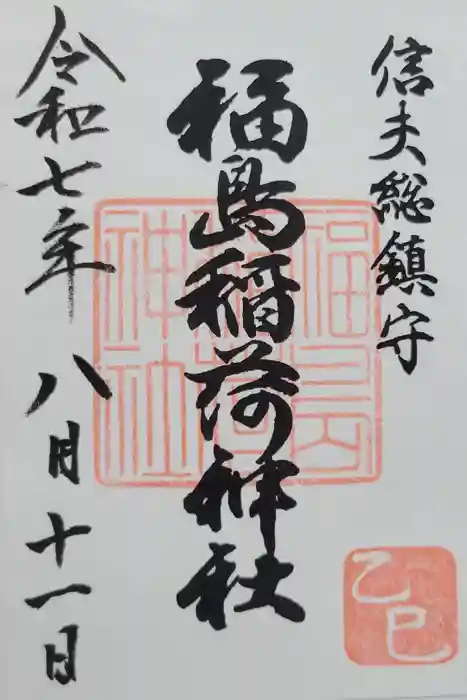 信夫総鎮守
福島稲荷神社
福島稲荷神社
令和七年 八月十一日
乙巳